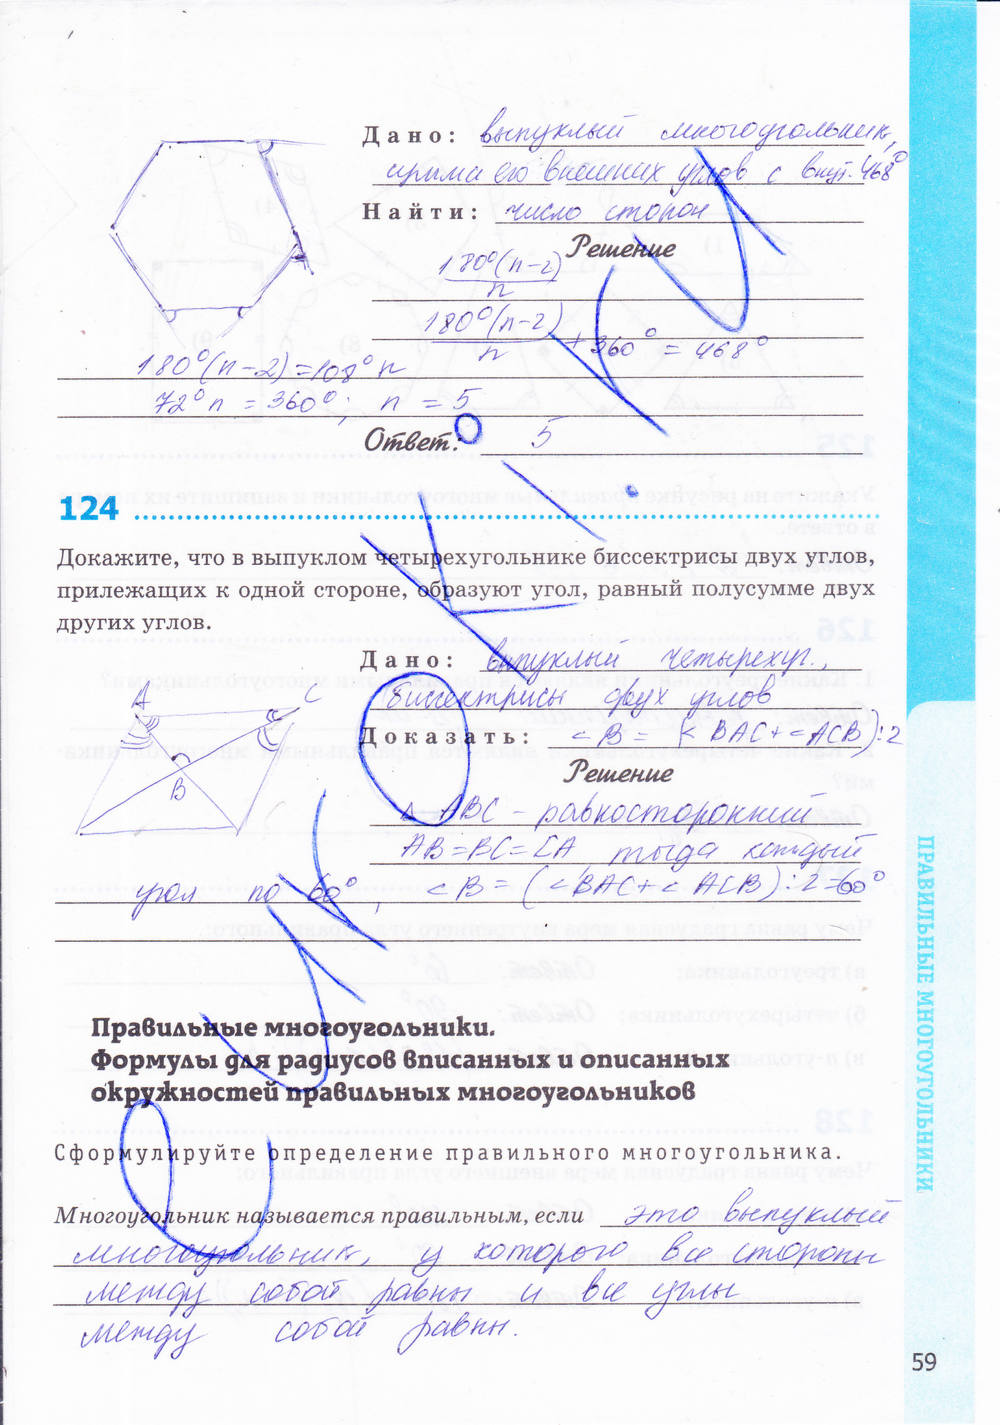 Дано: выпуклый многоугольник,
сумма его внешних углов с внут. 468°
Найти: число сторон
Решение
180°(n-2)
n
180°(n-2)
n + 360° = 468°
180°(n-2)=108° n
72° n = 360°; n = 5
Ответ: 5
124
Докажите, что в выпуклом четырехугольнике биссектрисы двух углов,
прилежащих к одной стороне, образуют угол, равный полусумме двух
других углов.
Дано: выпуклый четырехуг.,
биссектрисы двух углов
A C
Доказать: <B = (<BAC+<ACB):2
B
Решение
△ ABC - равносторонний
AB=BC=CA тогда каждый
угол по 60°, <B = (<BAC+<ACB):2=60°
Правильные многоугольники.
Формулы для радиусов вписанных и описанных
окружностей правильных многоугольников
Сформулируйте определение правильного многоугольника.
Многоугольник называется правильным, если это выпуклый
многоугольник, у которого все стороны
между собой равны и все углы
между собой равны.
ПРАВИЛЬНЫЕ МНОГОУГОЛЬНИКИ
59